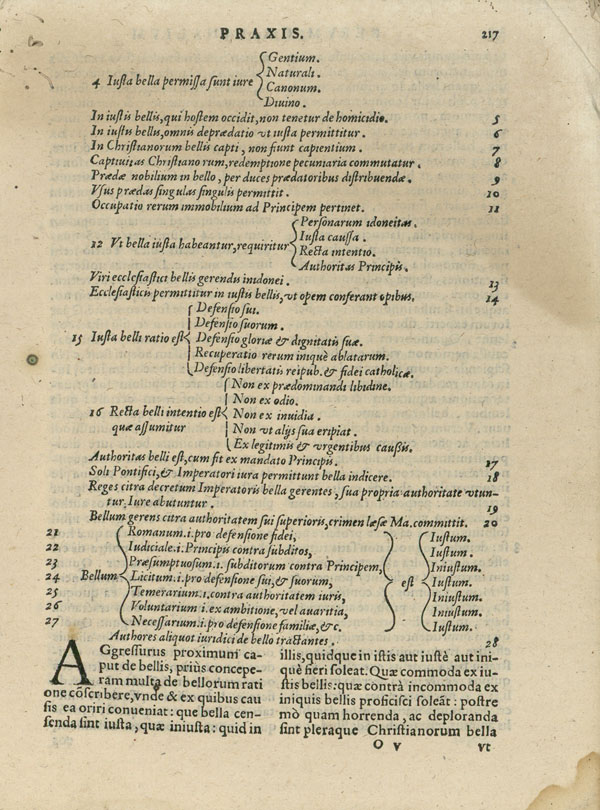 PRAXIS. 217
Gentium.
4 Iusta bella permissa sunt iure Naturali.
Canonum.
Diuino.
In iustis bellis, qui hostem occidit, non tenetur de homicidio. 5
In iustis bellis, omnis deprædatio vt iusta permittitur. 6
In Christianorum bellis capti, non fiunt capientium. 7
Captiuitas Christiano rum, redemptione pecuniaria commutatur. 8
Prædæ nobilium in bello, per duces prædatoribus distribuendæ. 9
Vsus prædas singulas singulis permittit. 10
Occupatio rerum immobilium ad Principem pertinet. 11
Personarum idoneitas.
12 Vt bella iusta habeantur, requiritur Iusta caussa.
Recta intentio.
Authoritas Principis.
Viri ecclesiastici bellis gerendis inidonei. 13
Ecclesiasticis permittitur in iustis bellis, vt opem conferant opibus. 14
Defensio sui.
Defensio suorum.
15 Iusta belli ratio est Defensio gloriæ & dignitatis suæ.
Recuperatio rerum iniquè ablatarum.
Defensio libertatis reipub. & fidei catholicæ.
Non ex prædominandi libidine.
Non ex odio.
16 Recta belli intentio est Non ex inuidia.
quæ assumitur Non vt alijs sua eripiat.
Ex legitimis & vrgentibus caussis.
Authoritas belli est, cum fit ex mandato Principis. 17
Soli Pontifici, & Imperatori iura permittunt bella indicere. 18
Reges citra decretum Imperatoris bella gerentes, sua propria authoritate vtun-
tur. Iure abutuntur. 19
Bellum gerens citra authoritatem sui superioris, crimen læsæ Ma. committit. 20
21 Romanum .i. pro defensione fidei, Iustum.
22 Iudiciale .i. Principis contra subditos, Iustum.
23 Præsumptuosum .i. subditorum contra Principem, Iniustum.
24 Bellum Licitum .i. pro defensione sui, & suorum, est Iustum.
25 Temerarium .i. contra authoritatem iuris, Iniustum.
26 Voluntarium .i. ex ambitione, vel auaritia, Iniustum.
27 Necessarium .i. pro defensione familiæ, &c. Iustum.
Authores aliquot iuridici de bello tractantes. 28
AGgressurus proximum ca-
put de bellis, priùs concepe-
ram multa de bellorum rati
one cõscribere, vnde & ex quibus cau
sis ea oriri conueniat: que bella cen-
senda sint iusta, quæ iniusta: quid in
illis, quidque in istis aut iustè aut ini-
què fieri soleat. Quæ commoda ex iu-
stis bellis: quæ contrà incommoda ex
iniquis bellis proficisci soleãt: postre
mò quam horrenda, ac deploranda
sint pleraque Christianorum bella
O v vt